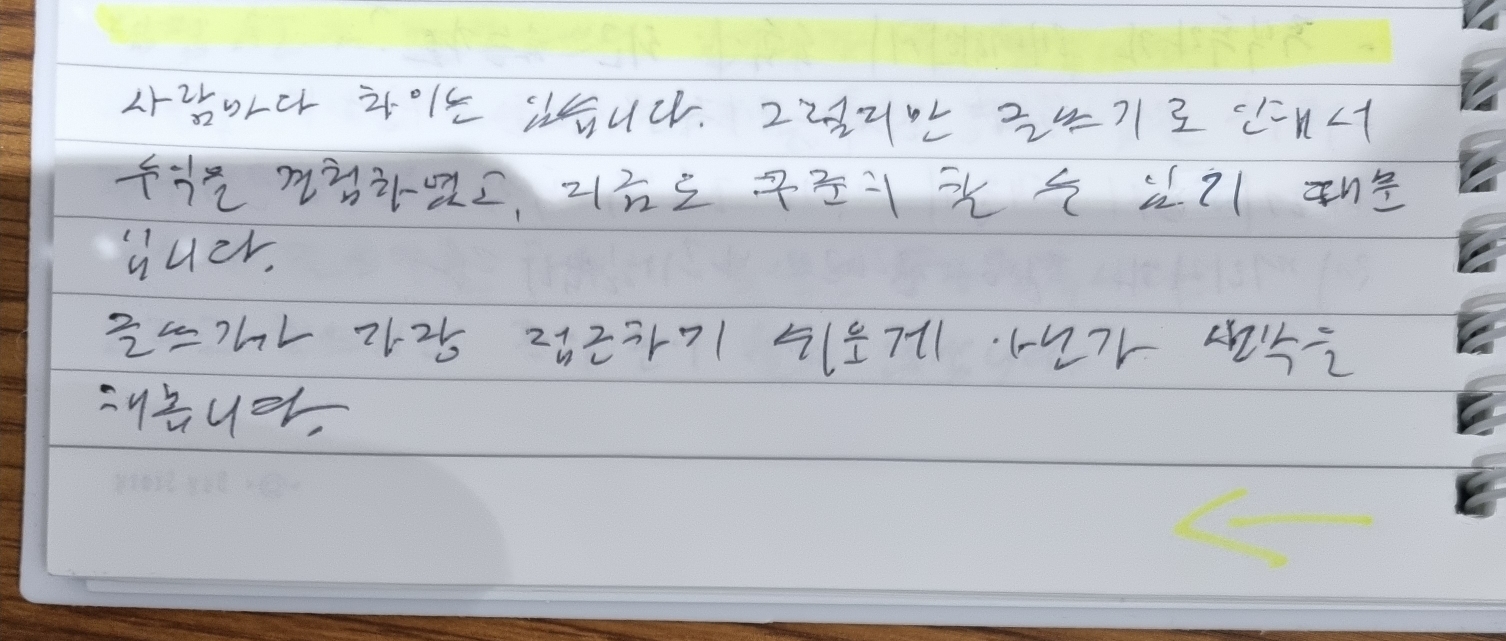 사람마다 차이는 있습니다. 그렇지만 글쓰기로 인해서
수익을 경험하였고, 지금도 꾸준히 할 수 있기 때문
입니다.
글쓰기가 가장 접근하기 쉬운게 아닌가 생각을
해봅니다.